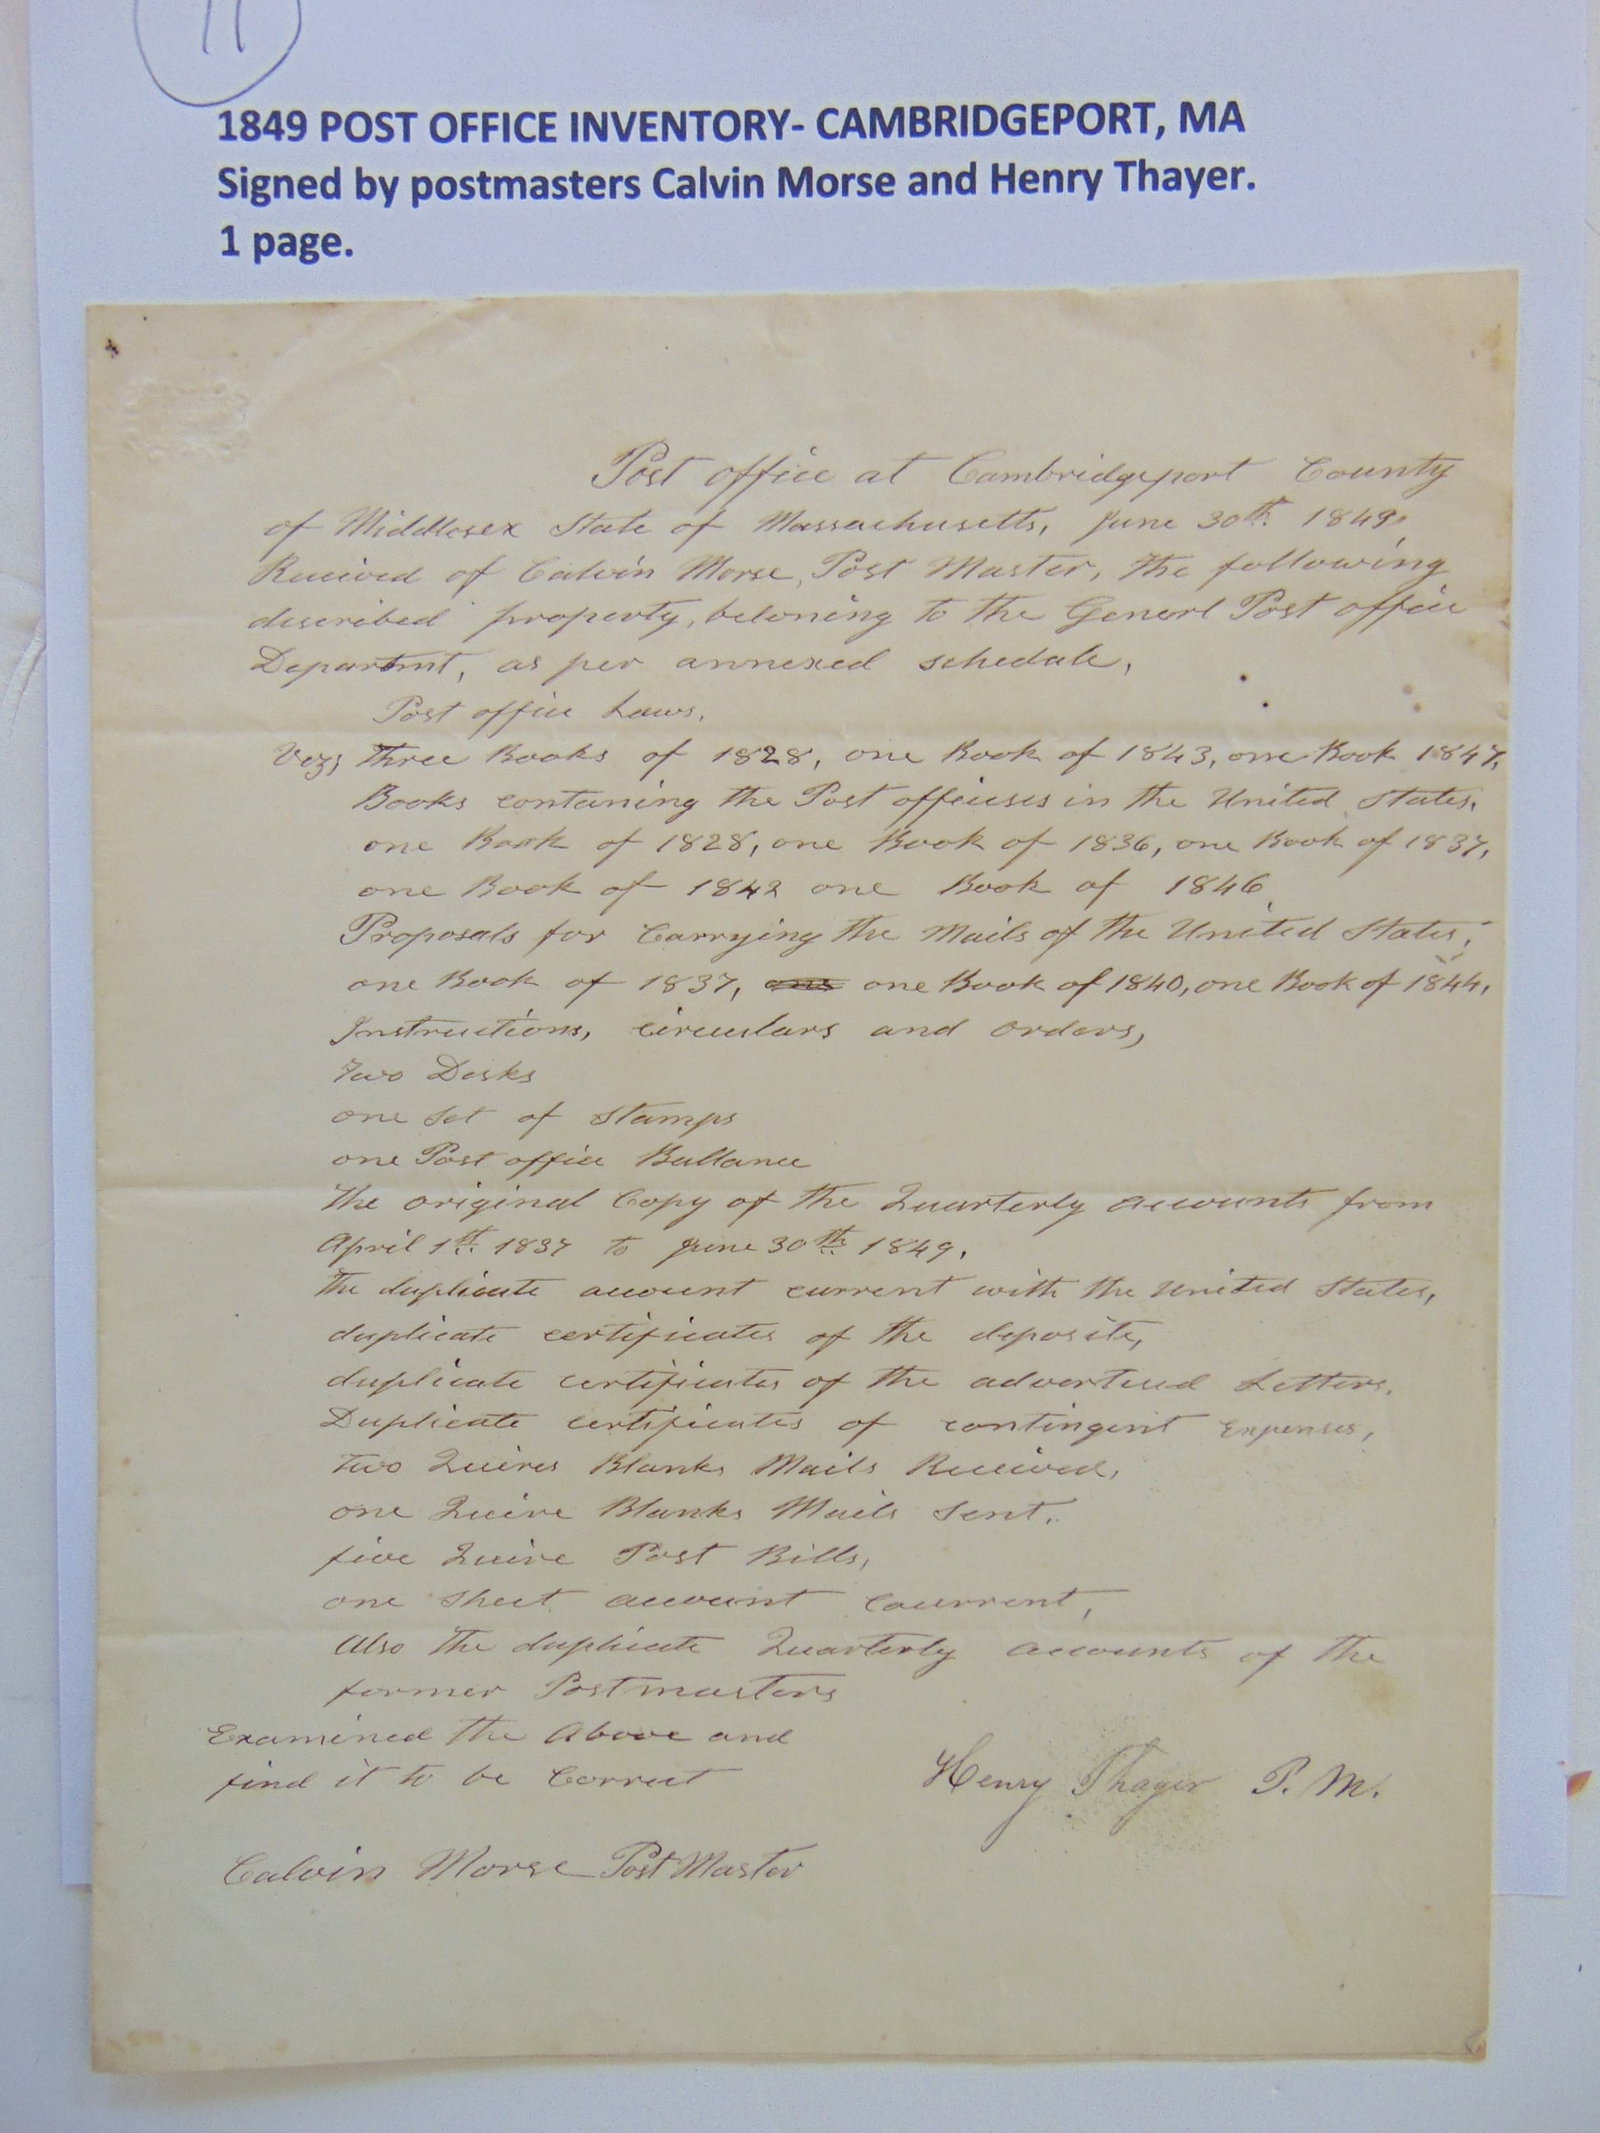 11
1849 POST OFFICE INVENTORY- CAMBRIDGEPORT, MA
Signed by postmasters Calvin Morse and Henry Thayer.
1 page.
Post office at Cambridgeport County
of Middlesex State of Massachusetts, June 30th. 1849.
Received of Calvin Morse, Post Master, the following
described property, beloning to the Generl Post office
Departmt, as per annexed schedule,
Post office Laws.
Viz; Three Books of 1828, one Book of 1843, one Book 1847,
Books contuning the Post offeices in the United States.
one Book of 1828, one Book of 1836, one Book of 1837,
one Book of 1842 one Book of 1846,
Proposals for Carrying the Mails of the United States;
one Book of 1837, one Book of 1840, one Book of 1844,
Instructions, circulars and orders,
Two Desks
one set of stamps
one Post office Ballance
The original Copy of the Quarterly accounts from
April 1st. 1837 to June 30th 1849.
The duplicate account current with the United States,
duplicate certificates of the deposite,
duplicate certificates of the advertised Letters.
Duplicate certificates of contingent Expenses,
Two Quires Blanks Mails Received,
one Quire Blanks Mails Sent.
five Quire Post Bills,
one sheet account Courrent,
Also The duplicate Quarterly accounts of the
former Postmasters
Examined the Above and
find it to be Correct
Henry Thayer P. M.
Calvin Morse Post Master